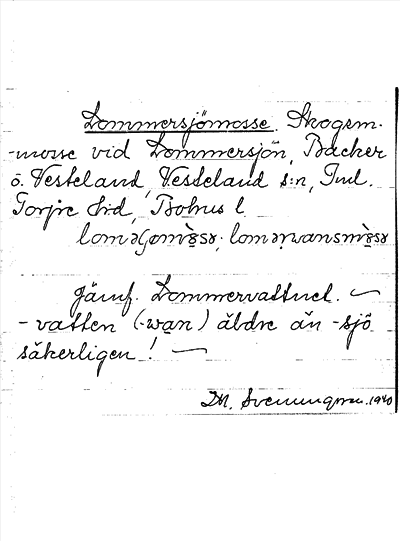 Lommersjömosse. Skogsm.
-mosse vid Lommersjön, Backer
ö. Vesteland, Vesteland s:n, Inl.
Torpe h:d, Bohus l.
Jämf. Lommervattnet. —
- vatten (-wan) äldre än -sjö
säkerligen! —
M. Svenungsson. 1940